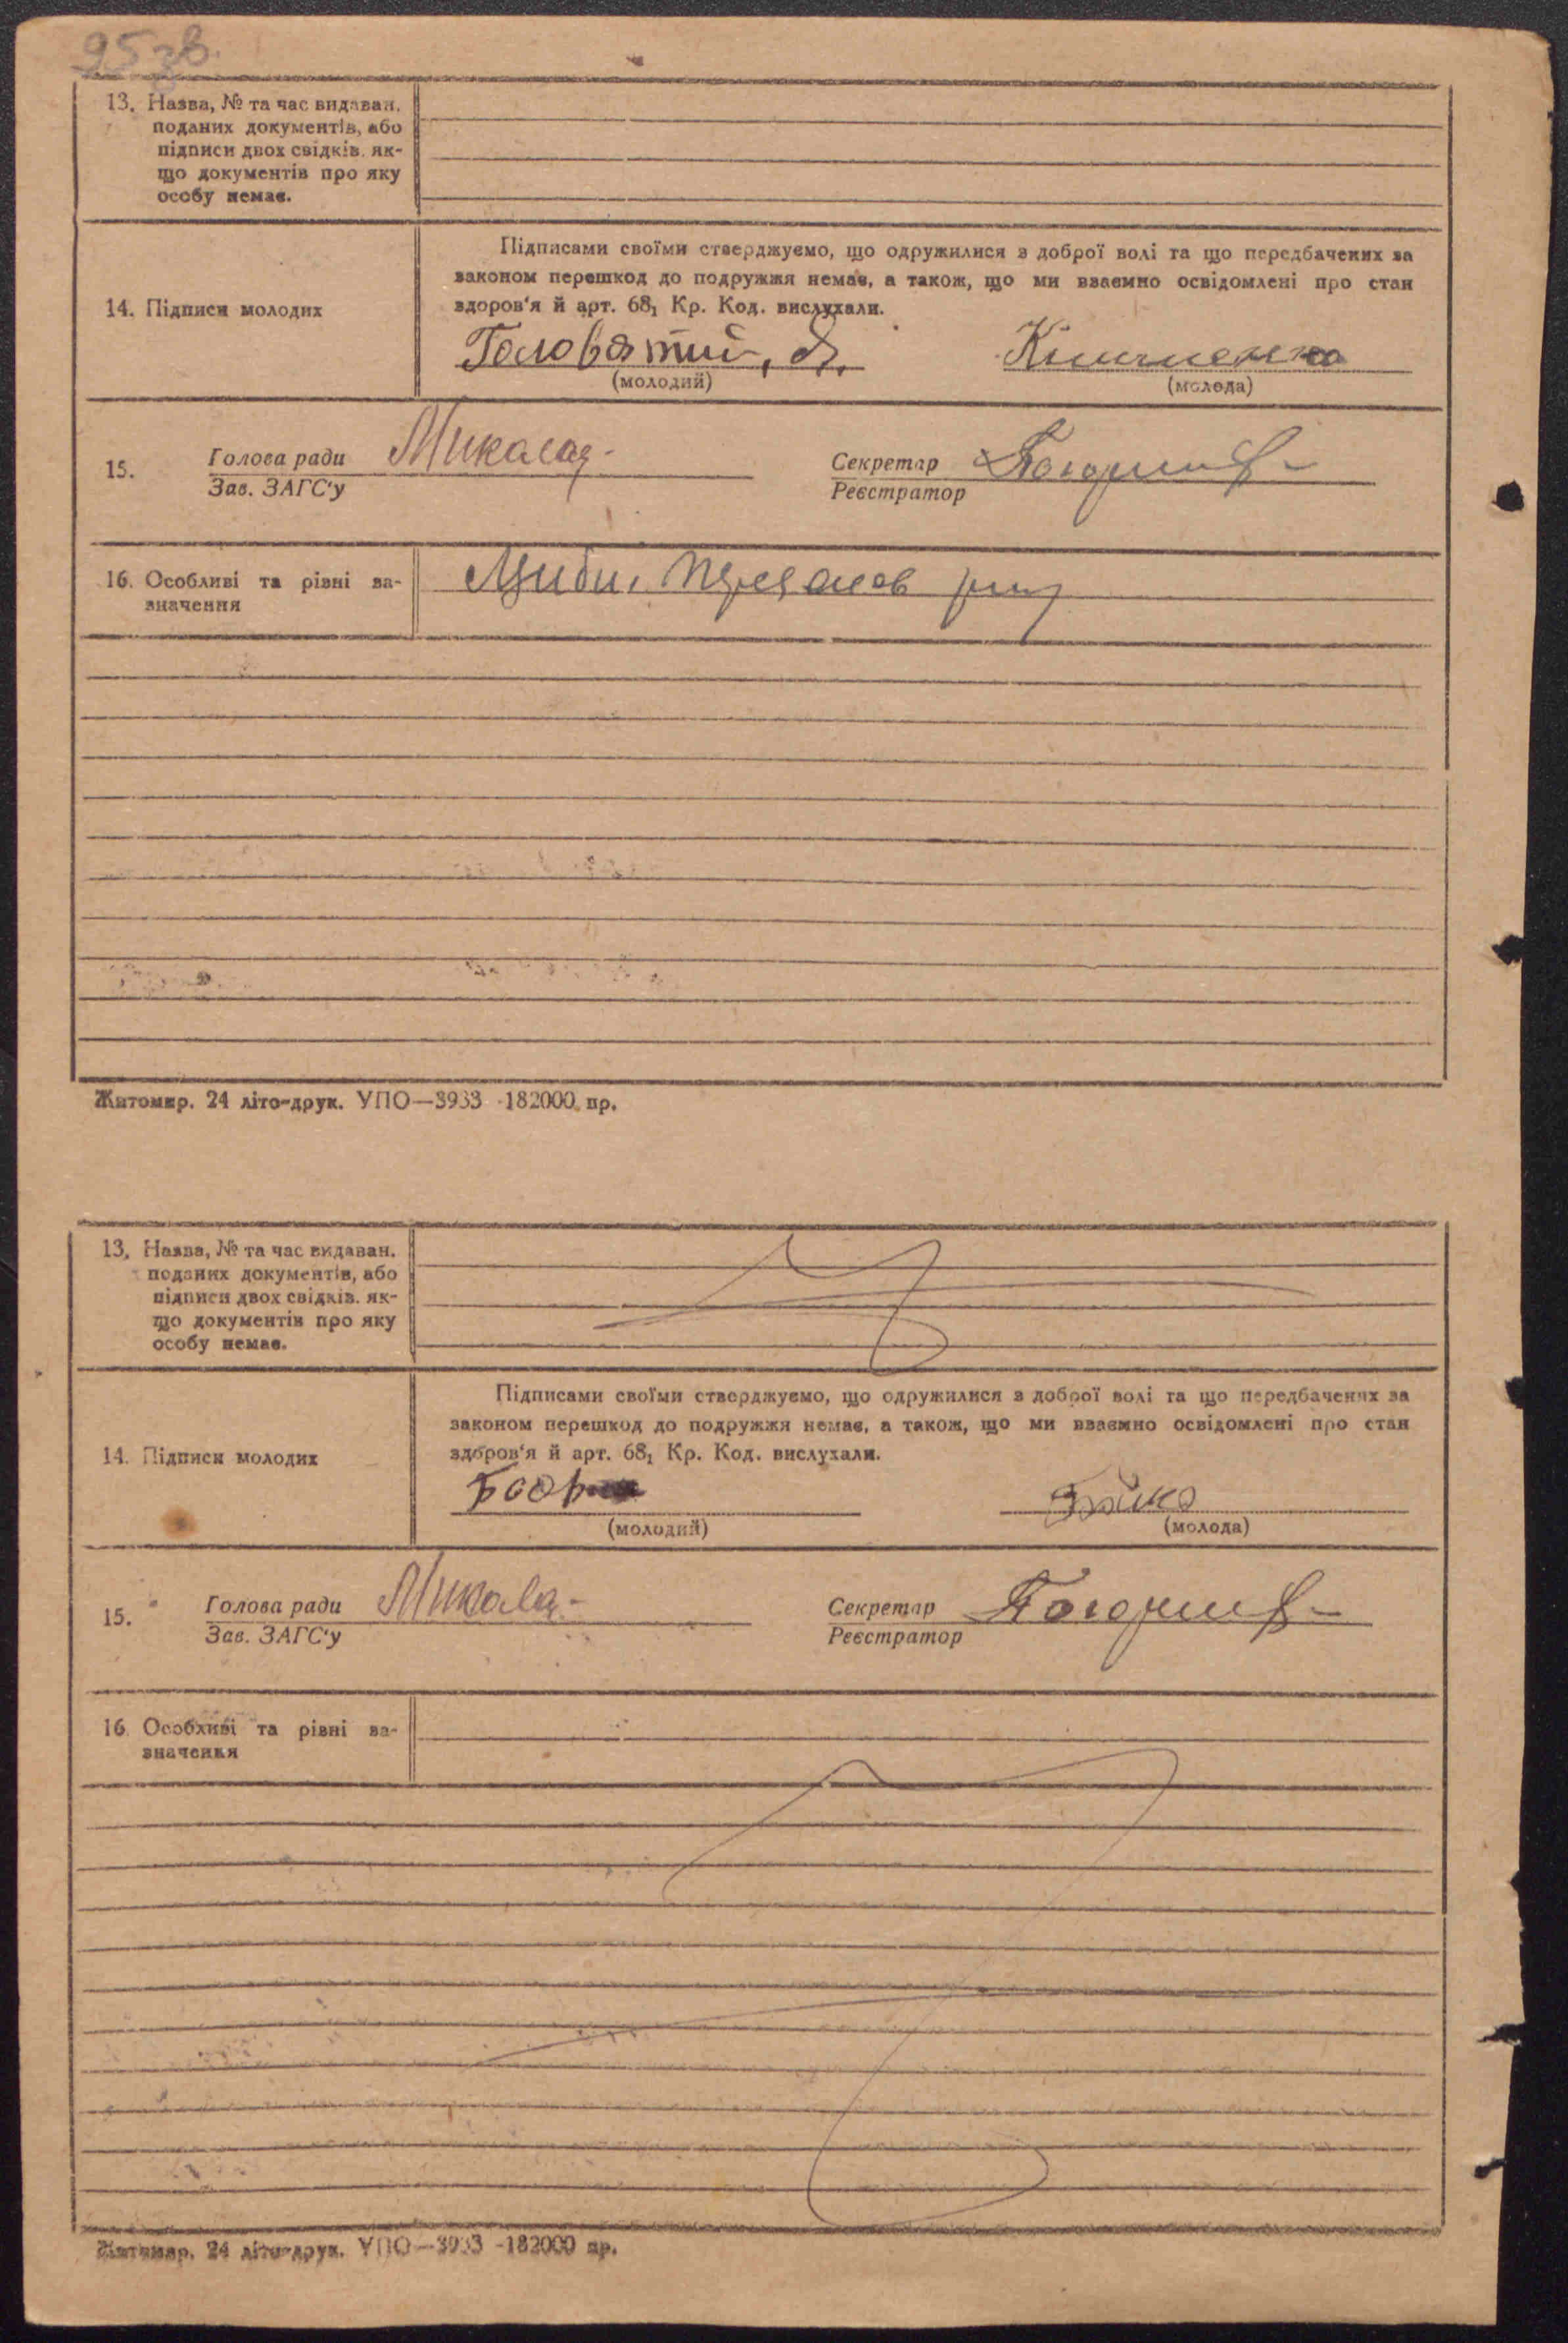 95 зв.
13. Назва, № та час видаван.
поданих документів, або
підписи двох свідків. як-
що документів про яку
особу немає.
Підписами своїми стверджуємо, що одружилися з доброї волі та що передбачених за
законом перешкод до подружжя немає, а також, що ми взаємно освідомлені про стан
здоров'я й арт. 68₁ Кр. Код. вислухали.
14. Підписи молодих
Головатий,
(молодий) (молода)
15. Голова ради Секретар
Зав. ЗАГС'у Реєстратор
16. Особливі та рівні за-
значення
Житомир. 24 літо-друк. УПО—3933 -182000 пр.
13. Назва, № та час видаван.
поданих документів, або
підписи двох свідків. як-
що документів про яку
особу немає.
Підписами своїми стверджуємо, що одружилися з доброї волі та що передбачених за
законом перешкод до подружжя немає, а також, що ми взаємно освідомлені про стан
здоров'я й арт. 68₁ Кр. Код. вислухали.
14. Підписи молодих
Бойко
(молодий) (молода)
15. Голова ради Секретар
Зав. ЗАГС'у Реєстратор
16. Особливі та рівні за-
значення
Житомир. 24 літо-друк. УПО—3933 -182000 пр.